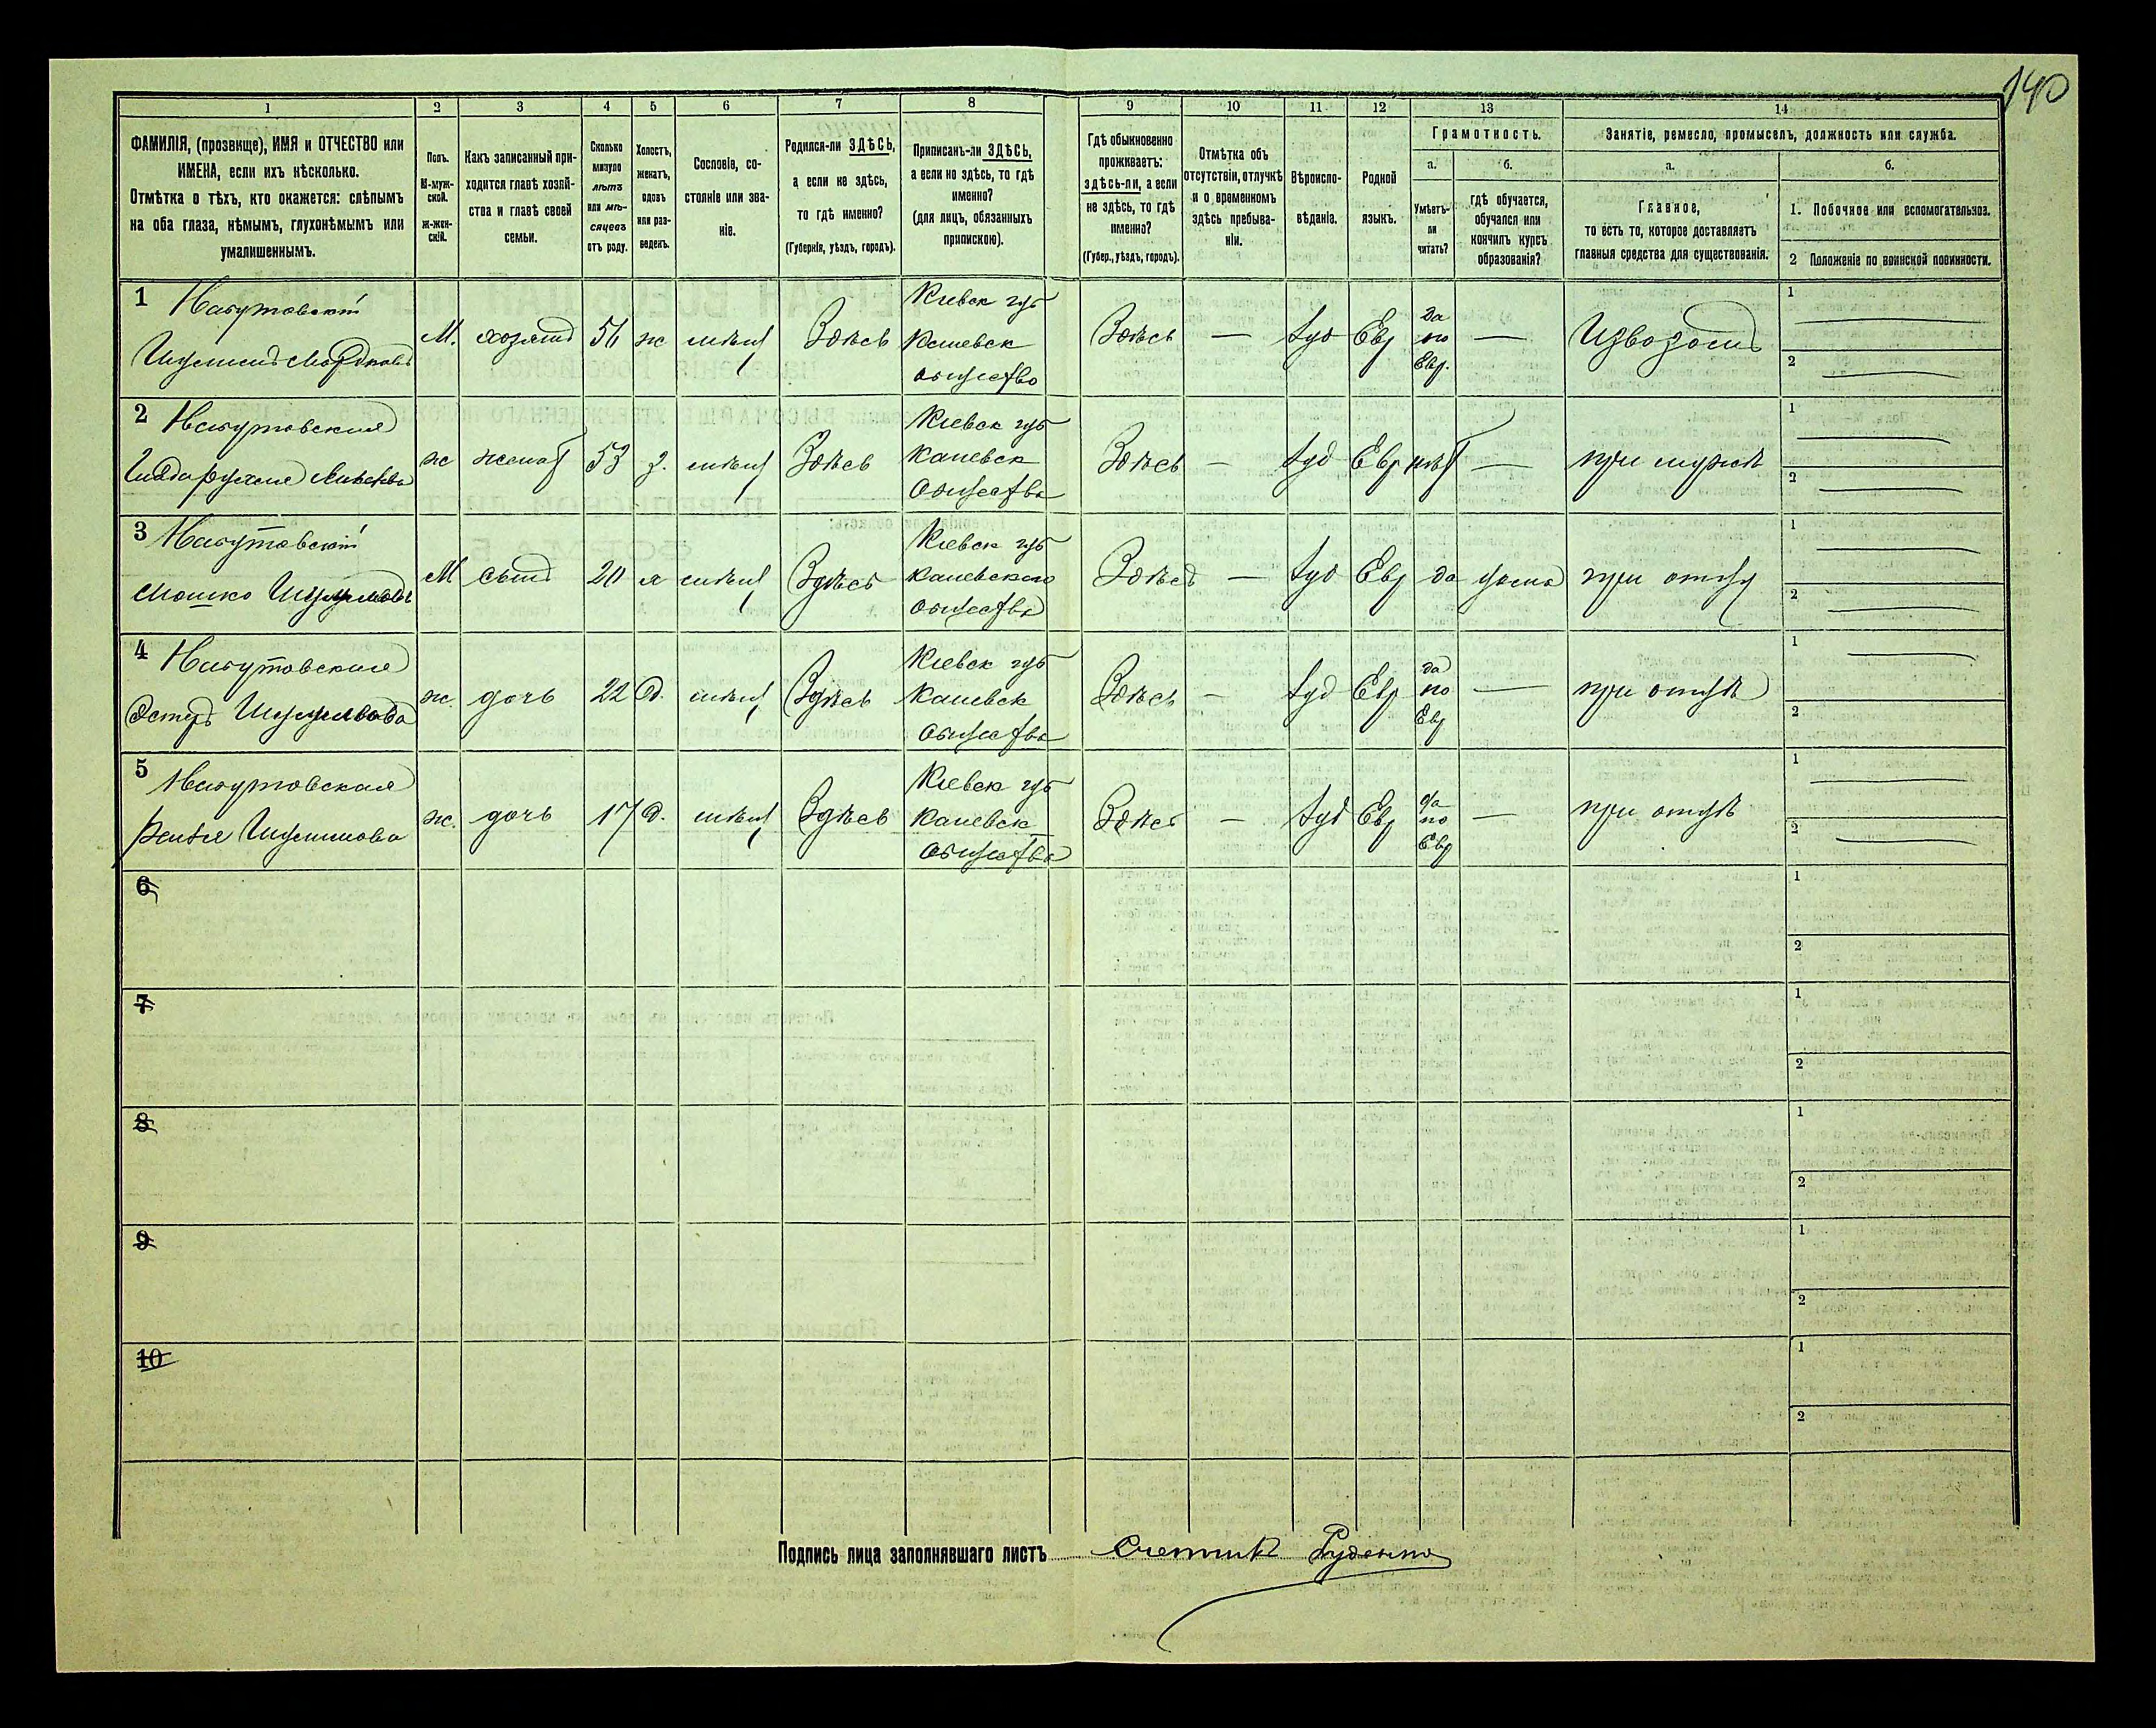 140
1 2 3 4 5 6 7 8 9 10 11 12 13 14
ФАМИЛІЯ, (прозвище), ИМЯ и ОТЧЕСТВО или
ИМЕНА, если ихъ нѣсколько.
Отмѣтка о тѣхъ, кто окажется: слѣпымъ
на оба глаза, нѣмымъ, глухонѣмымъ или
умалишеннымъ.
Полъ.
М-муж-
ской.
Ж-жен-
скій.
Какъ записанный при-
ходится главѣ хозяй-
ства и главѣ своей
семьи.
Сколько
минуло
лѣтъ
или мѣ-
сяцевъ
отъ роду.
Холостъ,
женатъ,
вдовъ
или раз-
веденъ.
Сословіе, со-
стояніе или зва-
ніе.
Родился-ли ЗДѢСЬ,
а если не здѣсь,
то гдѣ именно?
(Губернія, уѣздъ, городъ).
Приписанъ-ли ЗДѢСЬ,
а если но здѣсь, то гдѣ
именно?
(для лицъ, обязанныхъ
припискою).
Гдѣ обыкновенно
проживаетъ:
здѣсь-ли, а если
не здѣсь, то гдѣ
именно?
(Губер., уѣздъ, городъ).
Отмѣтка объ
отсутствіи, отлучкѣ
и о временномъ
здѣсь пребыва-
ніи.
Вѣроиспо-
вѣданіе.
Родной
языкъ.
Грамотность.
а.
Умѣетъ-
ли
читать?
б.
гдѣ обучается,
обучался или
кончилъ курсъ
образованія?
Занятіе, ремесло, промыселъ, должность или служба.
а.
Главное,
то есть то, которое доставляетъ
главныя средства для существованія.
б.
1. Побочное или вспомогательное.
2 Положеніе по воинской повинности.
1
М. хозяинъ 56 ж мѣщ Здѣсь
Кіевск губ
Каневск
общество
Здѣсь — Іуд Евр
да
по
Евр.
— Извозомъ
1
2
2
ж жена 53 з. мѣщ Здѣсь
Кіевск губ
Каневск
общества
Здѣсь — Іуд Евр нѣт — при мужѣ
1
2
3
Мошко
М сынъ 20 х мѣщ Здѣсь
Кіевск губ
Каневского
общества
Здѣсь — Іуд Евр да дома при отцѣ
1
2
4
Эстеръ
ж. дочь 22 д. мѣщ Здѣсь
Кіевск губ
Каневск
общества
Здѣсь — Іуд Евр
да
по
Евр
— при отцѣ
1
2
5
ж. дочь 17 д. мѣщ Здѣсь
Кіевск губ
Каневск
общества
Здѣсь — Іуд Евр
да
по
Евр
— при отцѣ
1
2
6
1
2
7
1
2
8
1
2
9
1
2
10
1
2
Подпись лица заполнявшаго листъ Счетчикъ Руденко